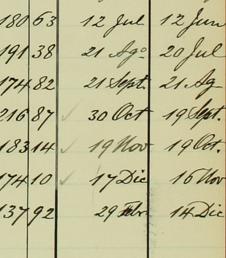 180 63 12 Jul 12 Jun
191 38 21 Ago 20 Jul
174 82 21 Sept. 21 Ag
216 87 30 Oct 19 Sept.
183 14 19 Nov 19 Oct.
174 10 17 Dic 16 Nov
137 92 29 14 Dic